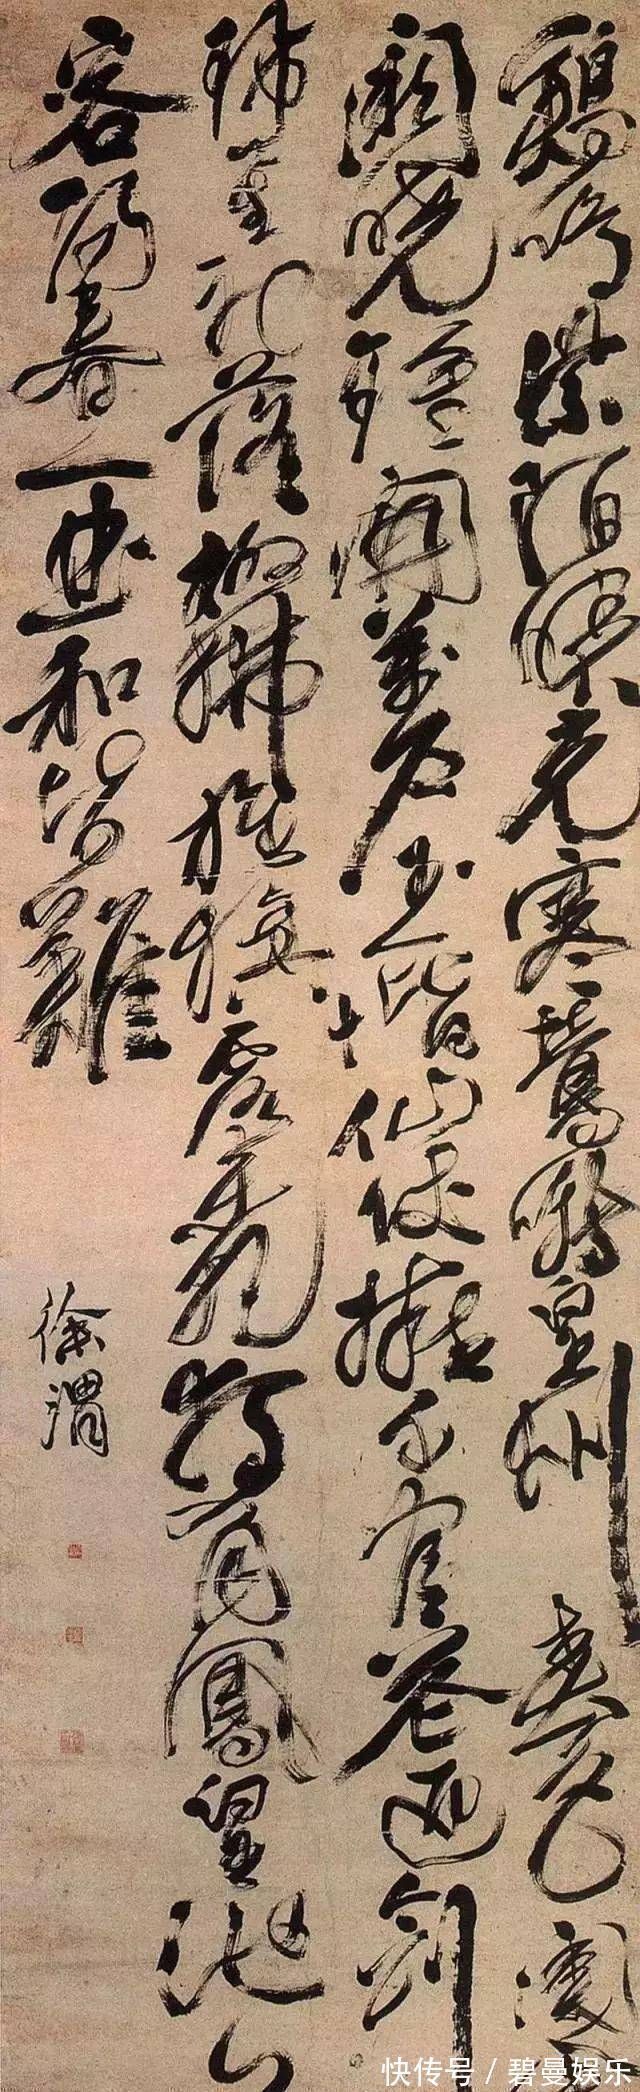 鷄鳴紫陌曙光寒鶯囀皇州春色闌
闕曉鐘開萬户玉階仙仗擁千官花迎劍
珮星初落柳拂旌旗露未乾獨有鳳皇池上
客陽春一曲和皆難
徐渭
快传号/碧曼娱乐